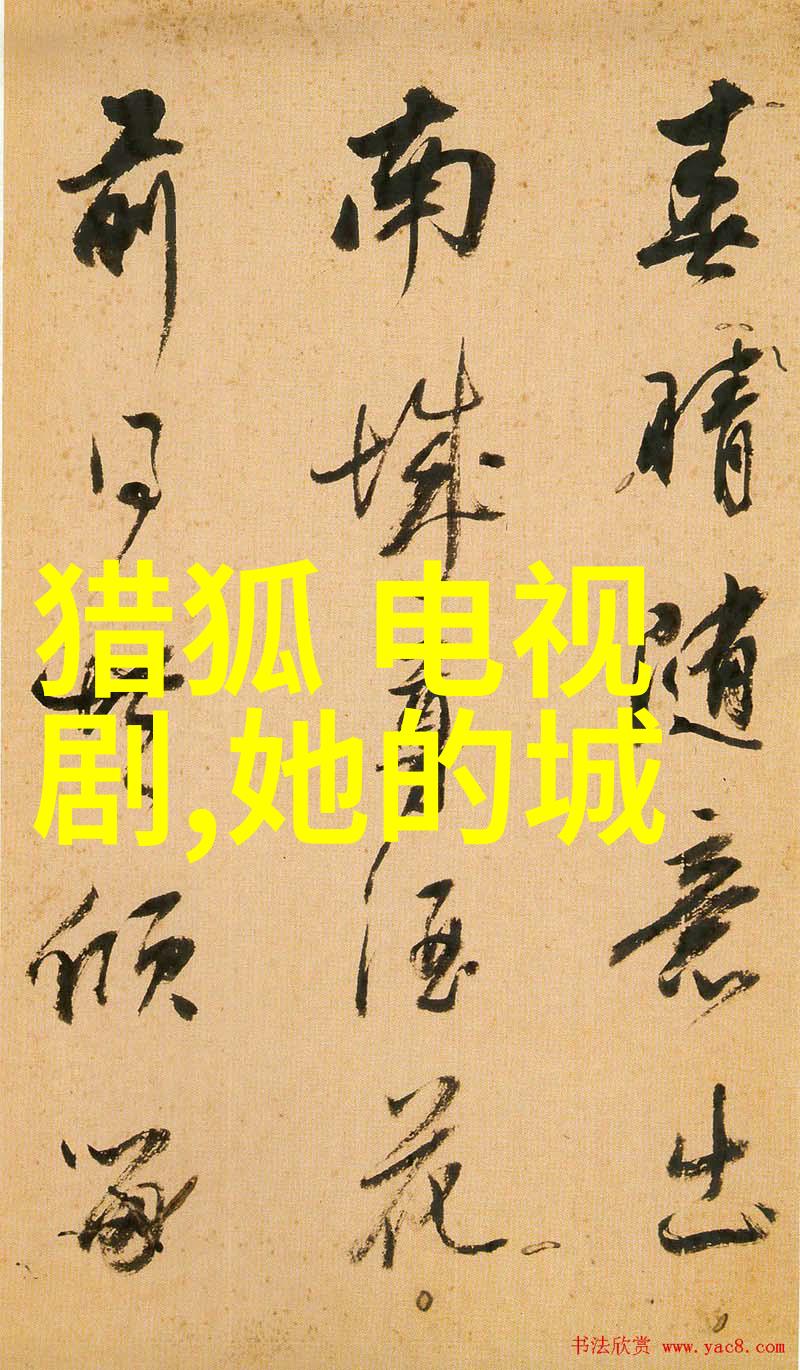 春晴随意出
南城酒花
前倾
猎狐 电视
剧,她的城
书法欣赏 www.yac8.com